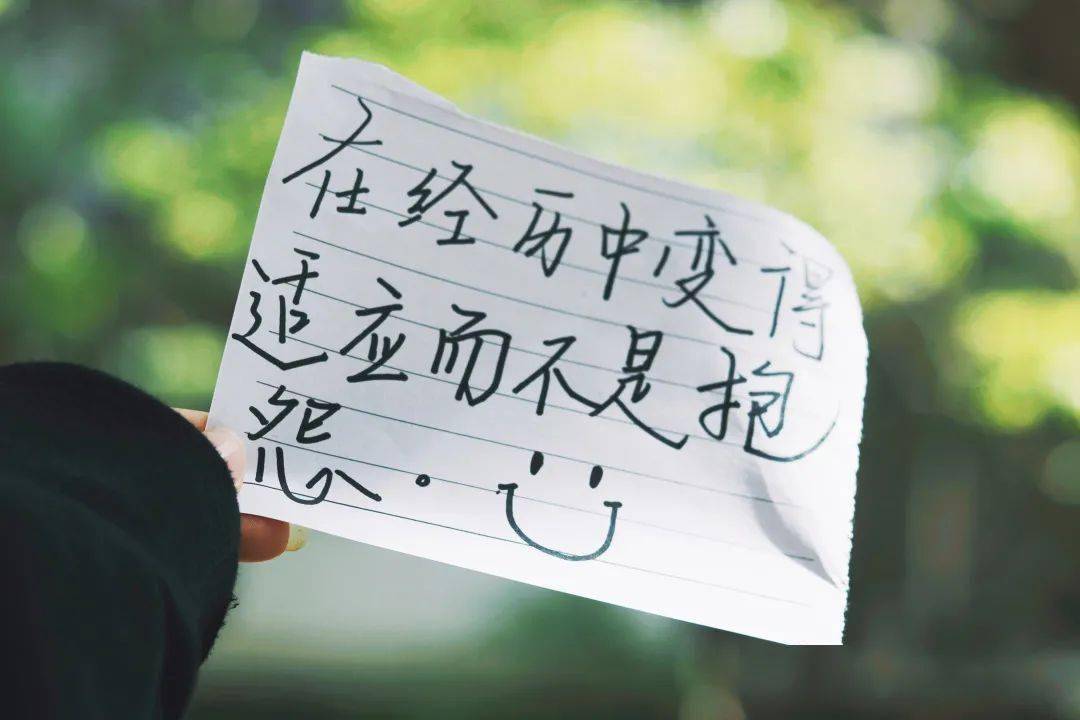 在经历中变得
适应而不是抱
怨。